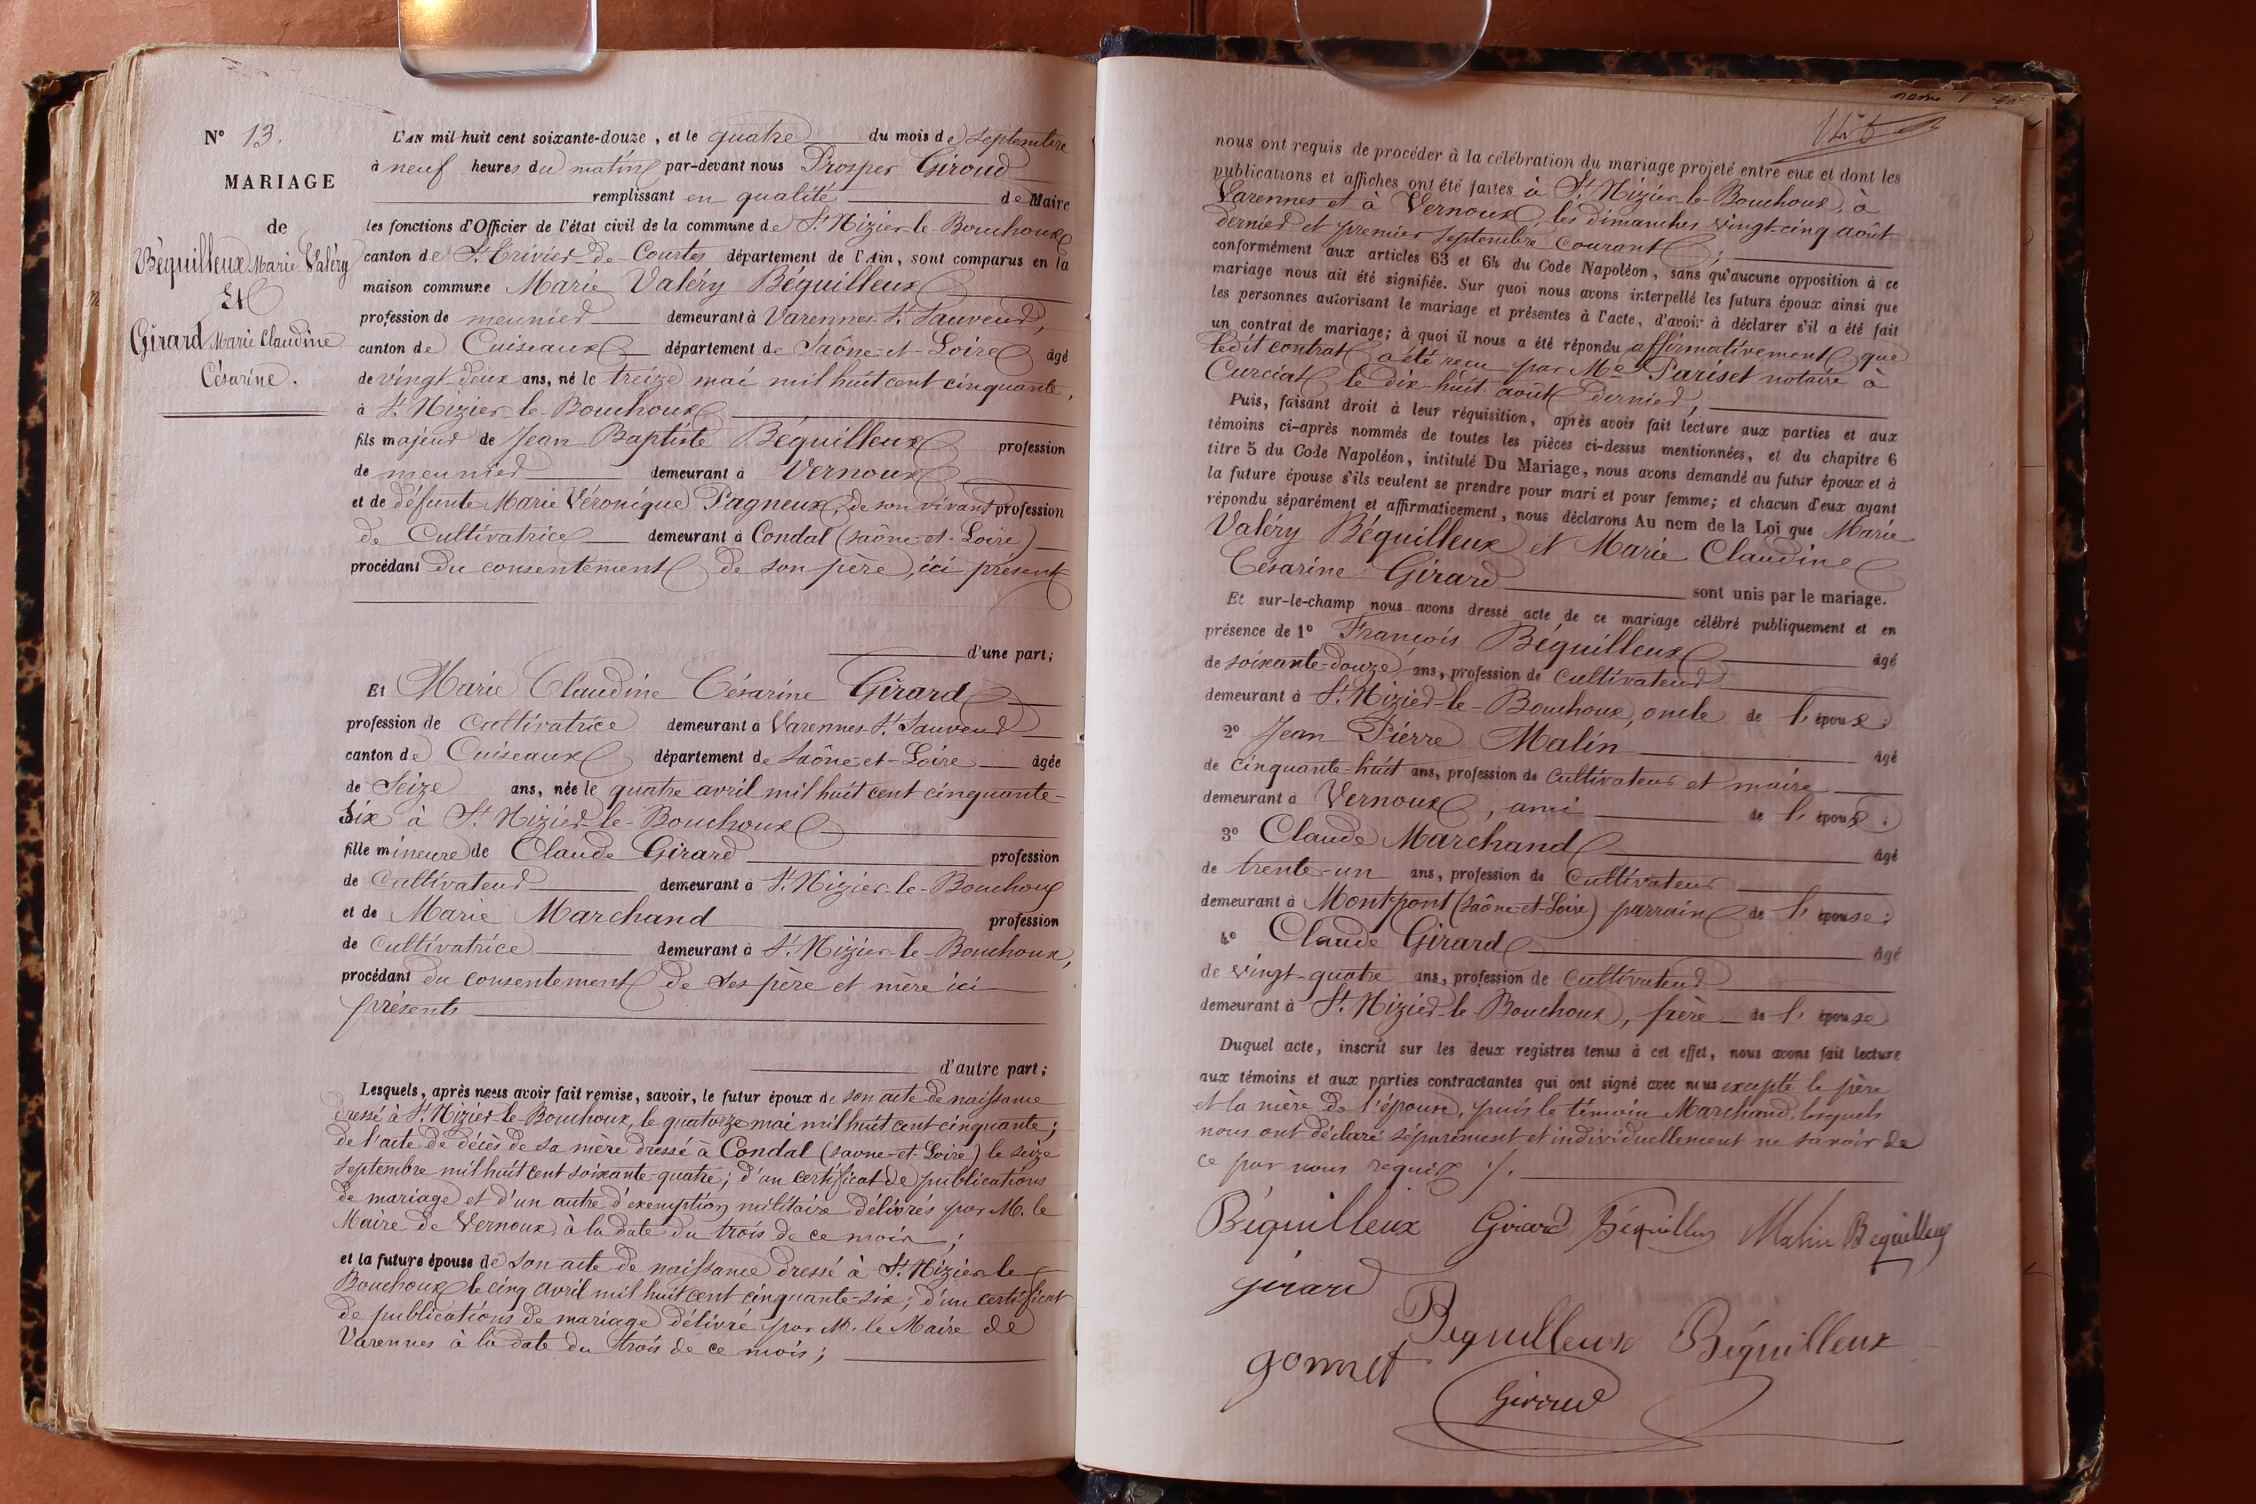 N° 13.
MARIAGE
de
Béquilleux Marie Valéry
Et
Girard Marie Claudine
Césarine.
L'AN mil huit cent soixante-douze, et le quatre du mois de septembre
à neuf heures du matin par-devant nous Prosper Giroud
remplissant en qualité de Maire
les fonctions d'Officier de l'état civil de la commune de St Nizier-le-Bouchoux
canton de St Trivier-de-Courtes département de l'Ain, sont comparus en la
maison commune Marie Valéry Béquilleux
profession de meunier demeurant à Varennes-St Sauveur,
canton de Cuiseaux département de Saône-et-Loire âgé
de vingt-deux ans, né le treize mai mil huit cent cinquante,
à St Nizier-le-Bouchoux
fils majeur de Jean Baptiste Béquilleux profession
de meunier demeurant à Vernoux
et de défunte Marie Véronique Pagneux, de son vivant profession
de Cultivatrice demeurant à Condal (Saône-et-Loire)
procédant du consentement de son père, ici présent
d'une part;
Et Marie Claudine Césarine Girard
profession de cultivatrice demeurant à Varennes-St Sauveur
canton de Cuiseaux département de Saône-et-Loire âgée
de Seize ans, née le quatre avril mil huit cent cinquante-
Six à St Nizier-le-Bouchoux
fille mineure de Claude Girard profession
de Cultivateur demeurant à St Nizier-le-Bouchoux
et de Marie Marchand profession
de Cultivatrice demeurant à St Nizier-le-Bouchoux,
procédant du consentement de ses père et mère ici
présents
d'autre part;
Lesquels, après nous avoir fait remise, savoir, le futur époux de son acte de naissance
dressé à St Nizier-le-Bouchoux, le quatorze mai mil huit cent cinquante;
de l'acte de décès de sa mère dressé à Condal (Saone-et-Loire) le seize
septembre mil huit cent soixante-quatre; d'un certificat de publications
de mariage et d'un autre d'exemption militaire délivrés par M. le
Maire de Vernoux, à la date du trois de ce mois;
et la future épouse de son acte de naissance dressé à St Nizier-le-
Bouchoux le cinq avril mil huit cent cinquante-six; d'un certificat
de publications de mariage délivré par M. le Maire de
Varennes à la date du trois de ce mois;
nous ont requis de procéder à la célébration du mariage projeté entre eux et dont les
publications et affiches ont été faites à St Nizier-le-Bouchoux, à
Varennes et à Vernoux, les dimanches vingt-cinq août
dernier et premier septembre courant;
conformément aux articles 63 et 64 du Code Napoléon, sans qu'aucune opposition à ce
mariage nous ait été signifiée. Sur quoi nous avons interpellé les futurs époux ainsi que
les personnes autorisant le mariage et présentes à l'acte, d'avoir à déclarer s'il a été fait
un contrat de mariage; à quoi il nous a été répondu affirmativement que
ledit contrat a été reçu par Me Pariset notaire à
Curciat, le dix-huit août dernier,
Puis, faisant droit à leur réquisition, après avoir fait lecture aux parties et aux
témoins ci-après nommés de toutes les pièces ci-dessus mentionnées, et du chapitre 6
titre 5 du Code Napoléon, intitulé Du Mariage, nous avons demandé au futur époux et à
la future épouse s'ils veulent se prendre pour mari et pour femme; et chacun d'eux ayant
répondu séparément et affirmativement, nous déclarons Au nom de la Loi que Marie
Valéry Béquilleux et Marie Claudine
Césarine Girard sont unis par le mariage.
Et sur-le-champ nous avons dressé acte de ce mariage célébré publiquement et en
présence de 1° François Béquilleux âgé
de soixante-douze ans, profession de cultivateur
demeurant à St Nizier-le-Bouchoux, oncle de l'époux;
2° Jean Pierre Malin âgé
de cinquante-huit ans, profession de cultivateur et maire
demeurant à Vernoux, ami de l'époux;
3° Claude Marchand âgé
de trente-un ans, profession de cultivateur
demeurant à Montpont (Saône-et-Loire) parrain de l'épouse;
4° Claude Girard âgé
de vingt-quatre ans, profession de cultivateur
demeurant à St Nizier-le-Bouchoux, frère de l'épouse
Duquel acte, inscrit sur les deux registres tenus à cet effet, nous avons fait lecture
aux témoins et aux parties contractantes qui ont signé avec nous excepté le père
et la mère de l'épouse, puis le témoin Marchand, lesquels
nous ont déclaré séparément et individuellement ne savoir de
ce par nous requis ./.
Béquilleux Girard Béquilleux Malin Bequilleux
girard
Bequilleux Béquilleux
gonnet
Giroud